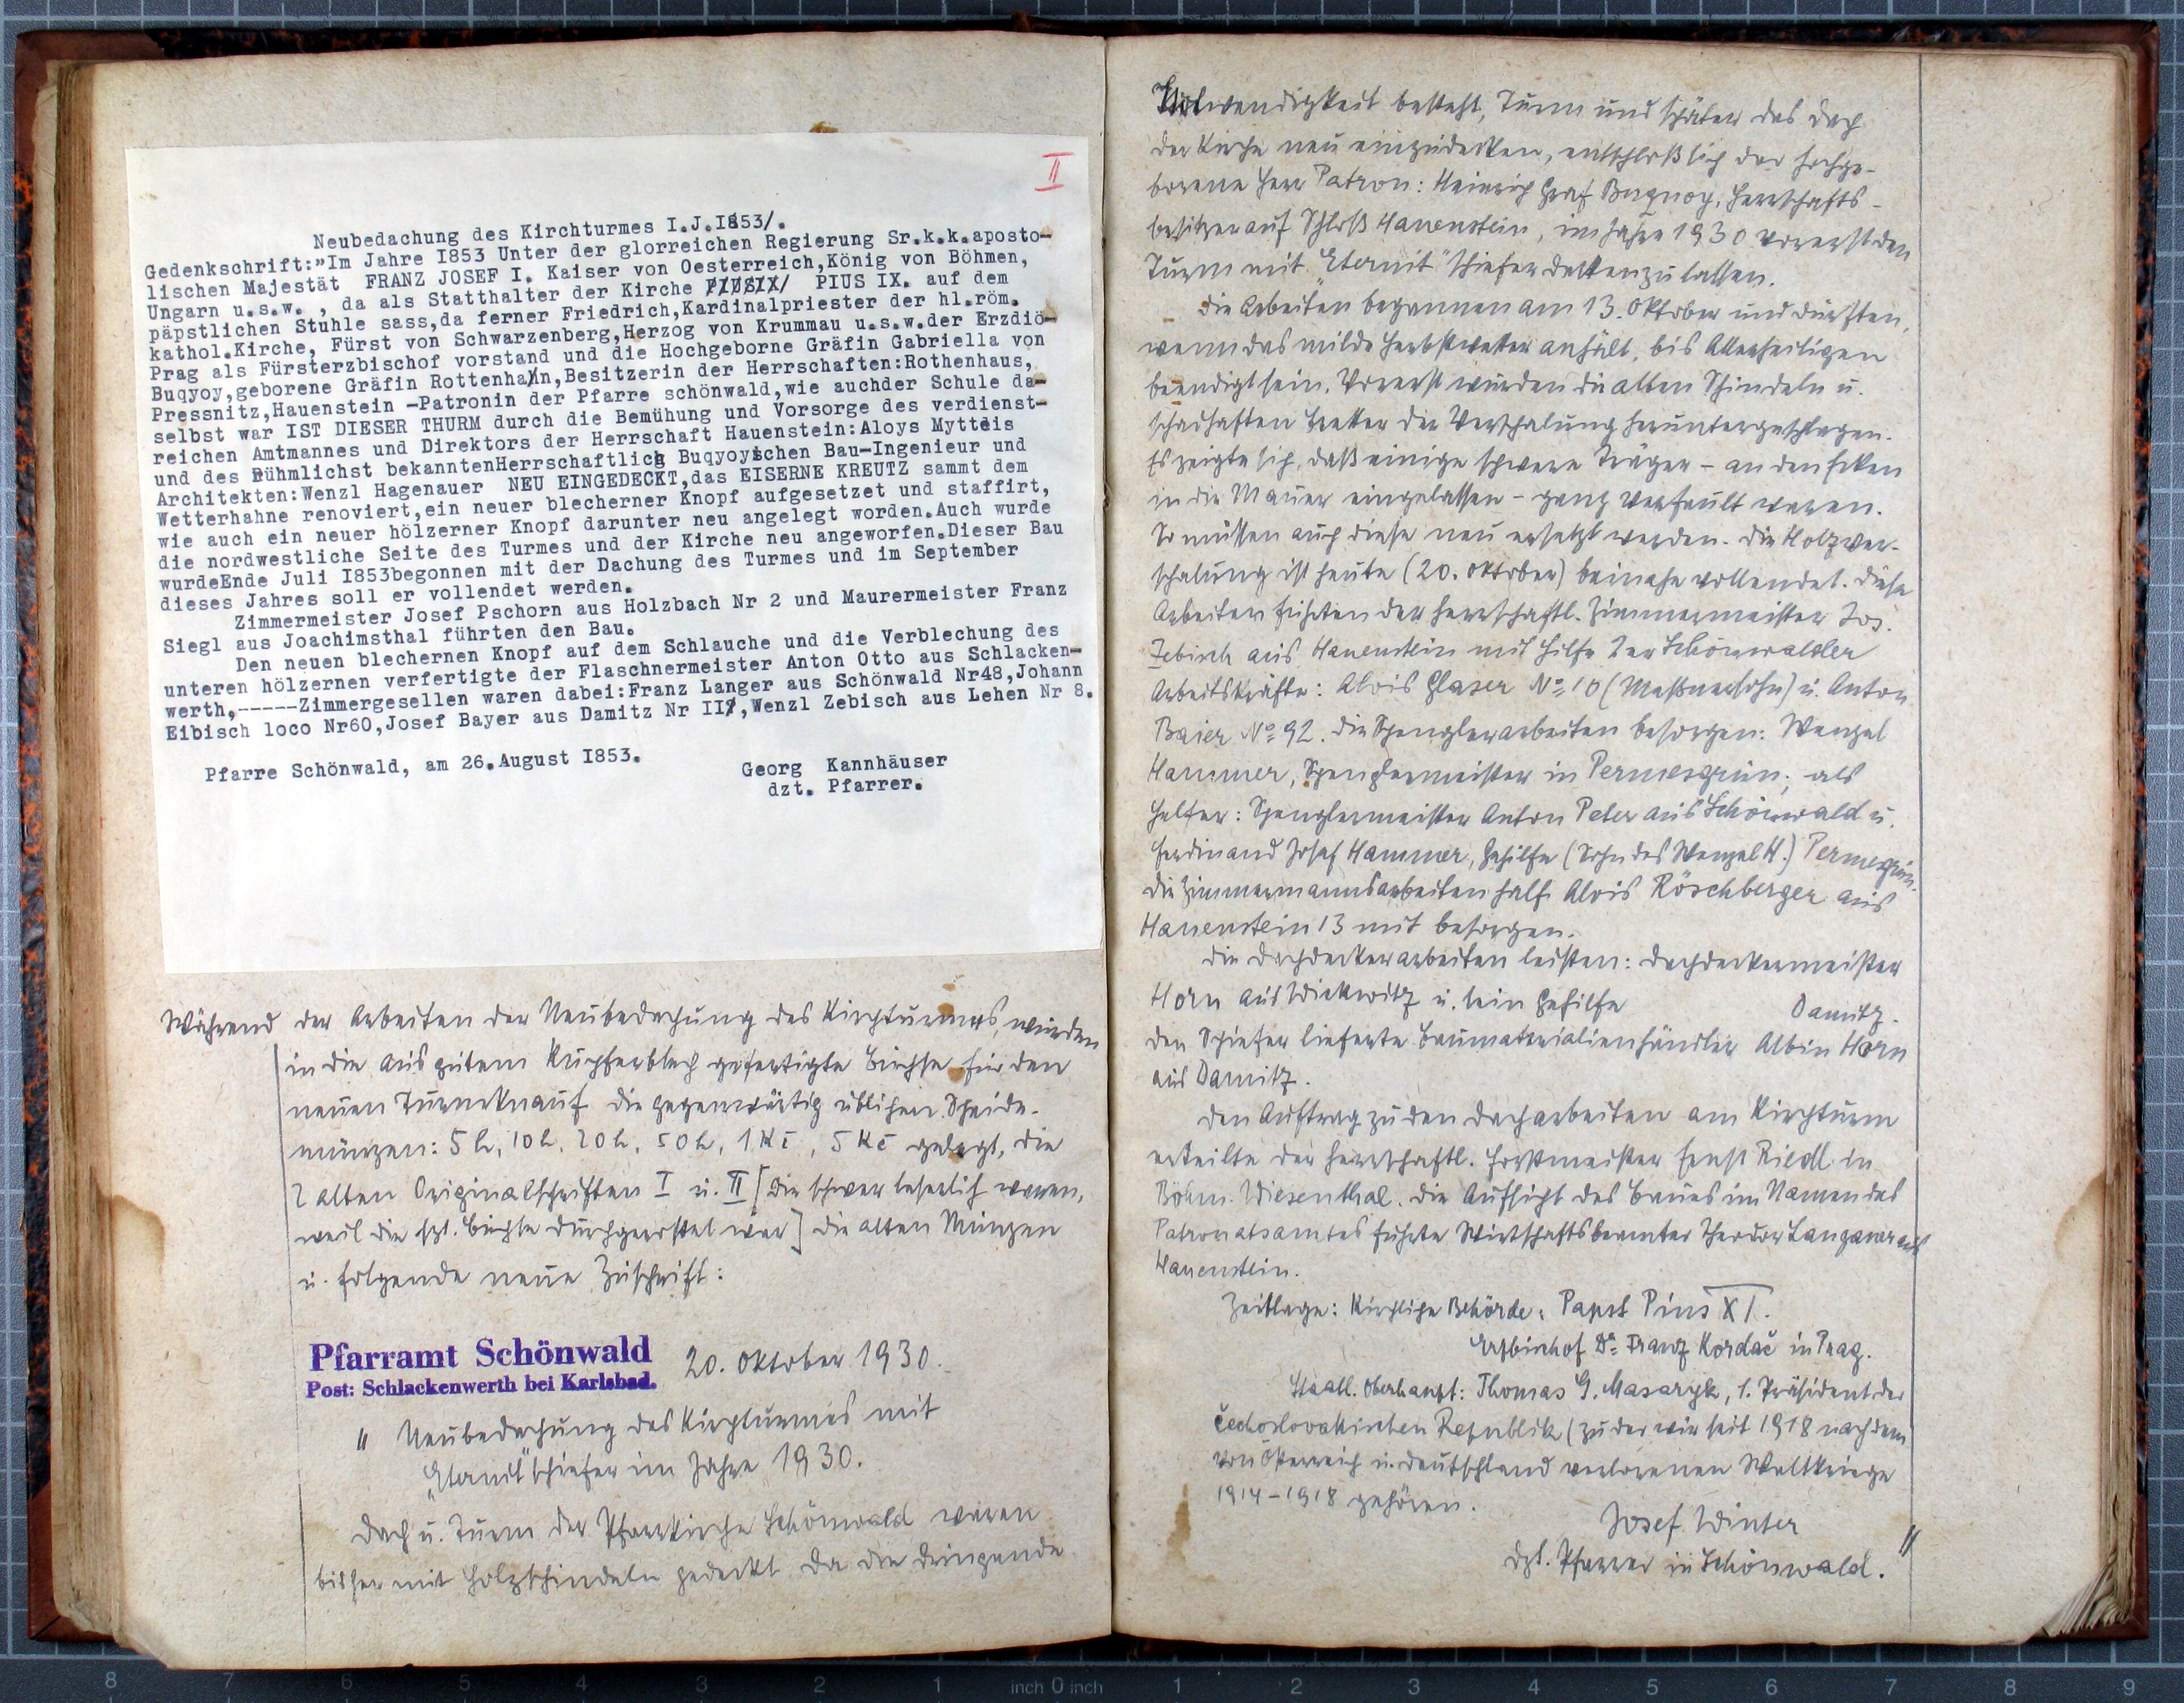 II
Neubedachung des Kirchturmes I.J.I853/.
Gedenkschrift:"Im Jahre I853 Unter der glorreichen Regierung Sr.k.k.aposto-
lischen Majestät FRANZ JOSEF I. Kaiser von Oesterreich,König von Böhmen,
Ungarn u.s.w. , da als Statthalter der Kirche PIUSIX/ PIUS IX. auf dem
päpstlichen Stuhle sass,da ferner Friedrich,Kardinalpriester der hl.röm.
kathol.Kirche, Fürst von Schwarzenberg,Herzog von Krummau u.s.w.der Erzdiö-
Prag als Fürsterzbischof vorstand und die Hochgeborne Gräfin Gabriella von
Buqyoy,geborene Gräfin Rottenhan,Besitzerin der Herrschaften:Rothenhaus,
Pressnitz,Hauenstein -Patronin der Pfarre schönwald,wie auchder Schule da-
selbst war IST DIESER THURM durch die Bemühung und Vorsorge des verdienst-
reichen Amtmannes und Direktors der Herrschaft Hauenstein:Aloys Mytteis
und des Rühmlichst bekanntenHerrschaftlich Buqyoyischen Bau-Ingenieur und
Architekten:Wenzl Hagenauer NEU EINGEDECKT,das EISERNE KREUTZ sammt dem
Wetterhahne renoviert,ein neuer blecherner Knopf aufgesetzet und staffirt,
wie auch ein neuer hölzerner Knopf darunter neu angelegt worden.Auch wurde
die nordwestliche Seite des Turmes und der Kirche neu angeworfen.Dieser Bau
wurdeEnde Juli I853begonnen mit der Dachung des Turmes und im September
dieses Jahres soll er vollendet werden.
Zimmermeister Josef Pschorn aus Holzbach Nr 2 und Maurermeister Franz
Siegl aus Joachimsthal führten den Bau.
Den neuen blechernen Knopf auf dem Schlauche und die Verblechung des
unteren hölzernen verfertigte der Flaschnermeister Anton Otto aus Schlacken-
werth,-----Zimmergesellen waren dabei:Franz Langer aus Schönwald Nr48,Johann
Eibisch loco Nr60,Josef Bayer aus Damitz Nr II7,Wenzl Zebisch aus Lehen Nr 8.
Pfarre Schönwald, am 26.August I853.
Georg Kannhäuser
dzt. Pfarrer.
Während der Arbeiten der Neubedachung des Kirchturmes, wurden
in die aus gutem Kupferblech gefertigte Büchse für den
neuen Turmknauf die gegenwärtig üblichen Scheide-
münzen: 5 h, 10 h, 20 h, 50 h, 1 Kč, 5 Kč gelegt, die
2 alten Originalschriften I u. II [die schwer leserlich waren,
weil die Büchse durchgerostet war] die alten Münzen
u. folgende neue Zuschrift:
Pfarramt Schönwald
Post: Schlackenwerth bei Karlsbad.
20. Oktober 1930.
" Neubedachung des Kirchturmes mit
„Eternit"schiefer im Jahre 1930.
Dach u. Turm der Pfarrkirche Schönwald waren
bisher mit Holzschindeln gedeckt. Da die dringende
Notwendigkeit besteht, Turm und später das Dach
der Kirche neu einzudecken, entschloß sich der hochge-
borene Herr Patron: Heinrich Graf Buquoy, Herrschafts-
besitzer auf Schloß Hauenstein, im Jahre 1930 vorerst den
Turm mit „Eternit"schiefer decken zu lassen.
Die Arbeiten begannen am 13. Oktober und dürften,
wenn das milde Herbstwetter anhält, bis Allerheiligen
beendigt sein. Vorerst wurden die alten Schindeln u.
schadhaften Bretter der Verschalung heruntergeschlagen.
Es zeigte sich, daß einige schwere Träger - an den Ecken
in die Mauer eingelassen - ganz verfault waren.
So müssen auch diese neu ersetzt werden. Die Holzver-
schalung ist heute (20. Oktober) beinahe vollendet. Diese
Arbeiten führten der herrschaftl. Zimmermeister Jos.
Zebisch aus Hauenstein mit Hilfe der Schönwalder
Arbeitskräfte: Alois Glaser No 10 (Meßnersohn) u. Anton
Baier No 92. Die Spenglerarbeiten besorgen: Wenzel
Hammer, Spenglermeister in Permesgrün, als
Helfer: Spenglermeister Anton Peter aus Schönwald u.
Ferdinand Josef Hammer, Gehilfe (Sohn des Wenzel H.) Permesgrün.
Die Zimmermannsarbeiten half Alois Röschberger aus
Hauenstein 13 mit besorgen.
Die Dachdeckerarbeiten leisten: Dachdeckermeister
Horn aus Wickwitz u. sein Gehilfe Damitz.
Den Schiefer lieferte Baumaterialienhändler Albin Horn
aus Damitz.
Den Auftrag zu den Dacharbeiten am Kirchturm
erteilte der herrschaftl. Forstmeister Ernst Riedl in
Böhm. Wiesenthal. Die Aufsicht des Baues im Namen des
Patronatsamtes führte Wirtschaftsbeamter Theodor Langhammer aus
Hauenstein.
Zeitlage: Kirchliche Behörde: Papst Pius XI.
Erzbischof Dr Franz Kordač in Prag.
Staatl. Oberhaupt: Thomas G. Masaryk, 1. Präsident der
čechoslovakischen Republik (zu der wir seit 1918 nach dem
von Österreich u. Deutschland verlorenen Weltkriege
1914-1918 gehören.
Josef Winter
dzt. Pfarrer in Schönwald. "